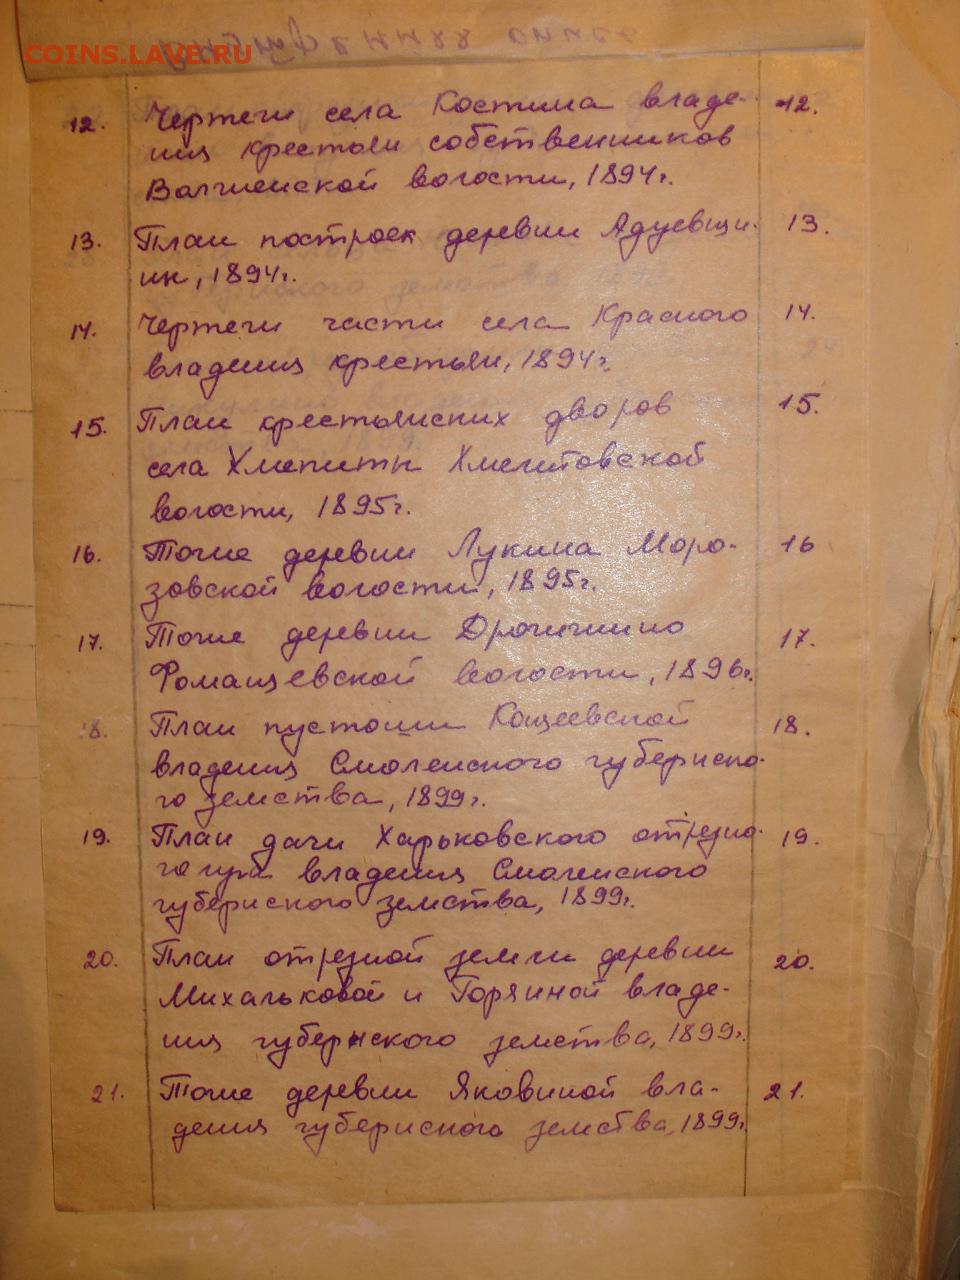 COINS.LAVE.RU
внутренняя опись
12. Чертеж села Костина владе- 12.
ния крестьян собственников
волости, 1894г.
13. План построек деревни Адуевщи- 13.
ны, 1894г.
14. Чертеж части села Красного 14.
владения крестьян, 1894г.
15. План крестьянских дворов 15.
села Хмелиты Хмелитовской
волости, 1895г.
16. Тоже деревни Лукина Моро- 16
зовской волости, 1895г.
17. Тоже деревни 17.
волости, 1896г.
18. План пустоши Кощеевской 18.
владения Смоленского губернско-
го земства, 1899г.
19. План дачи Харьковского отрезно- 19.
го луга владения Смоленского
губернского земства, 1899г.
20. План отрезной земли деревни 20.
Михальковой и Горяиной владе-
ния губернского земства, 1899г.
21. Тоже деревни Яковиной вла- 21.
дения губернского земства, 1899г.